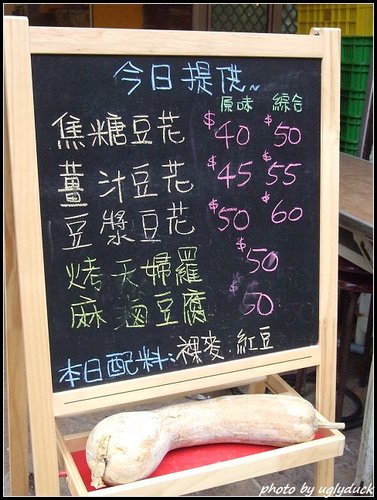 今日提供~
原味 綜合
焦糖豆花 $40 $50
薑汁豆花 $45 $55
豆漿豆花 $50 $60
烤天婦羅 $50
麻滷豆腐 $50
本日配料:裸麥.紅豆
photo by uglyduck